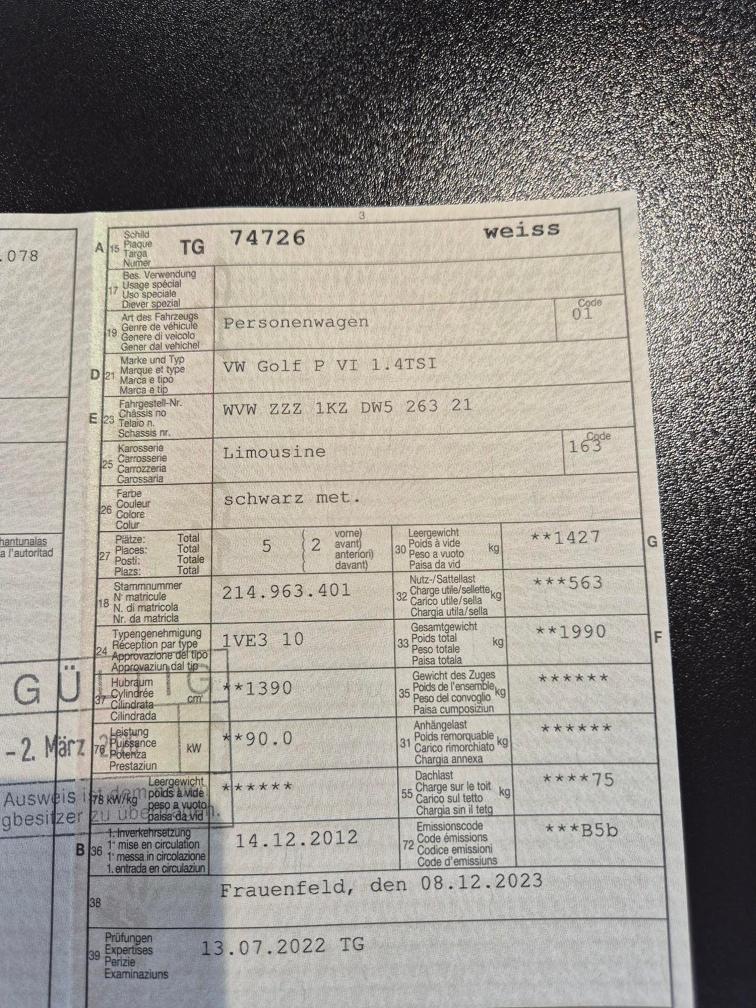 3
.078
A 15 Schild Plaque Targa Numer TG 74726 weiss
17 Bes. Verwendung Usage spécial Uso speciale Diever spezial
19 Art des Fahrzeugs Genre de véhicule Genere di veicolo Gener dal vehichel Personenwagen Code 01
D 21 Marke und Typ Marque et type Marca e tipo Marca e tip VW Golf P VI 1.4TSI
E 23 Fahrgestell-Nr. Châssis no Telaio n. Schassis nr. WVW ZZZ 1KZ DW5 263 21
25 Karosserie Carrosserie Carrozzeria Carossaria Limousine Code 163
26 Farbe Couleur Colore Colur schwarz met.
hantunalas
a l'autoritad
27 Plätze: Total Places: Total Posti: Totale Plazs: Total 5 2 vorne) avant) anteriori) davant) 30 Leergewicht Poids à vide Peso a vuoto Paisa da vid kg **1427 G
18 Stammnummer N° matricule N. di matricola Nr. da matricla 214.963.401 32 Nutz-/Sattellast Charge utile/sellette Carico utile/sella Chargia utila/sella kg ***563
24 Typengenehmigung Réception par type Approvazione del tipo Approvaziun dal tip 1VE3 10 33 Gesamtgewicht Poids total Peso totale Paisa totala kg **1990 F
GÜ TG
37 Hubraum Cylindrée Cilindrata Cilindrada cm³ **1390 35 Gewicht des Zuges Poids de l'ensemble Peso del convoglio Paisa cumposiziun kg ******
-2. März
76 Leistung Puissance Potenza Prestaziun kW **90.0 31 Anhängelast Poids remorquable Carico rimorchiato Chargia annexa kg ******
Ausweis ist dem
gbesitzer zu übertragen.
78 kW/kg Leergewicht poids à vide peso a vuoto paisa da vid ****** 55 Dachlast Charge sur le toit Carico sul tetto Chargia sin il tetg kg ****75
B 36 1. Inverkehrsetzung 1° mise en circulation 1° messa in circolazione 1. entrada en circulaziun 14.12.2012 72 Emissionscode Code émissions Codice emissioni Code d'emissiuns ***B5b
38 Frauenfeld, den 08.12.2023
39 Prüfungen Expertises Perizie Examinaziuns 13.07.2022 TG